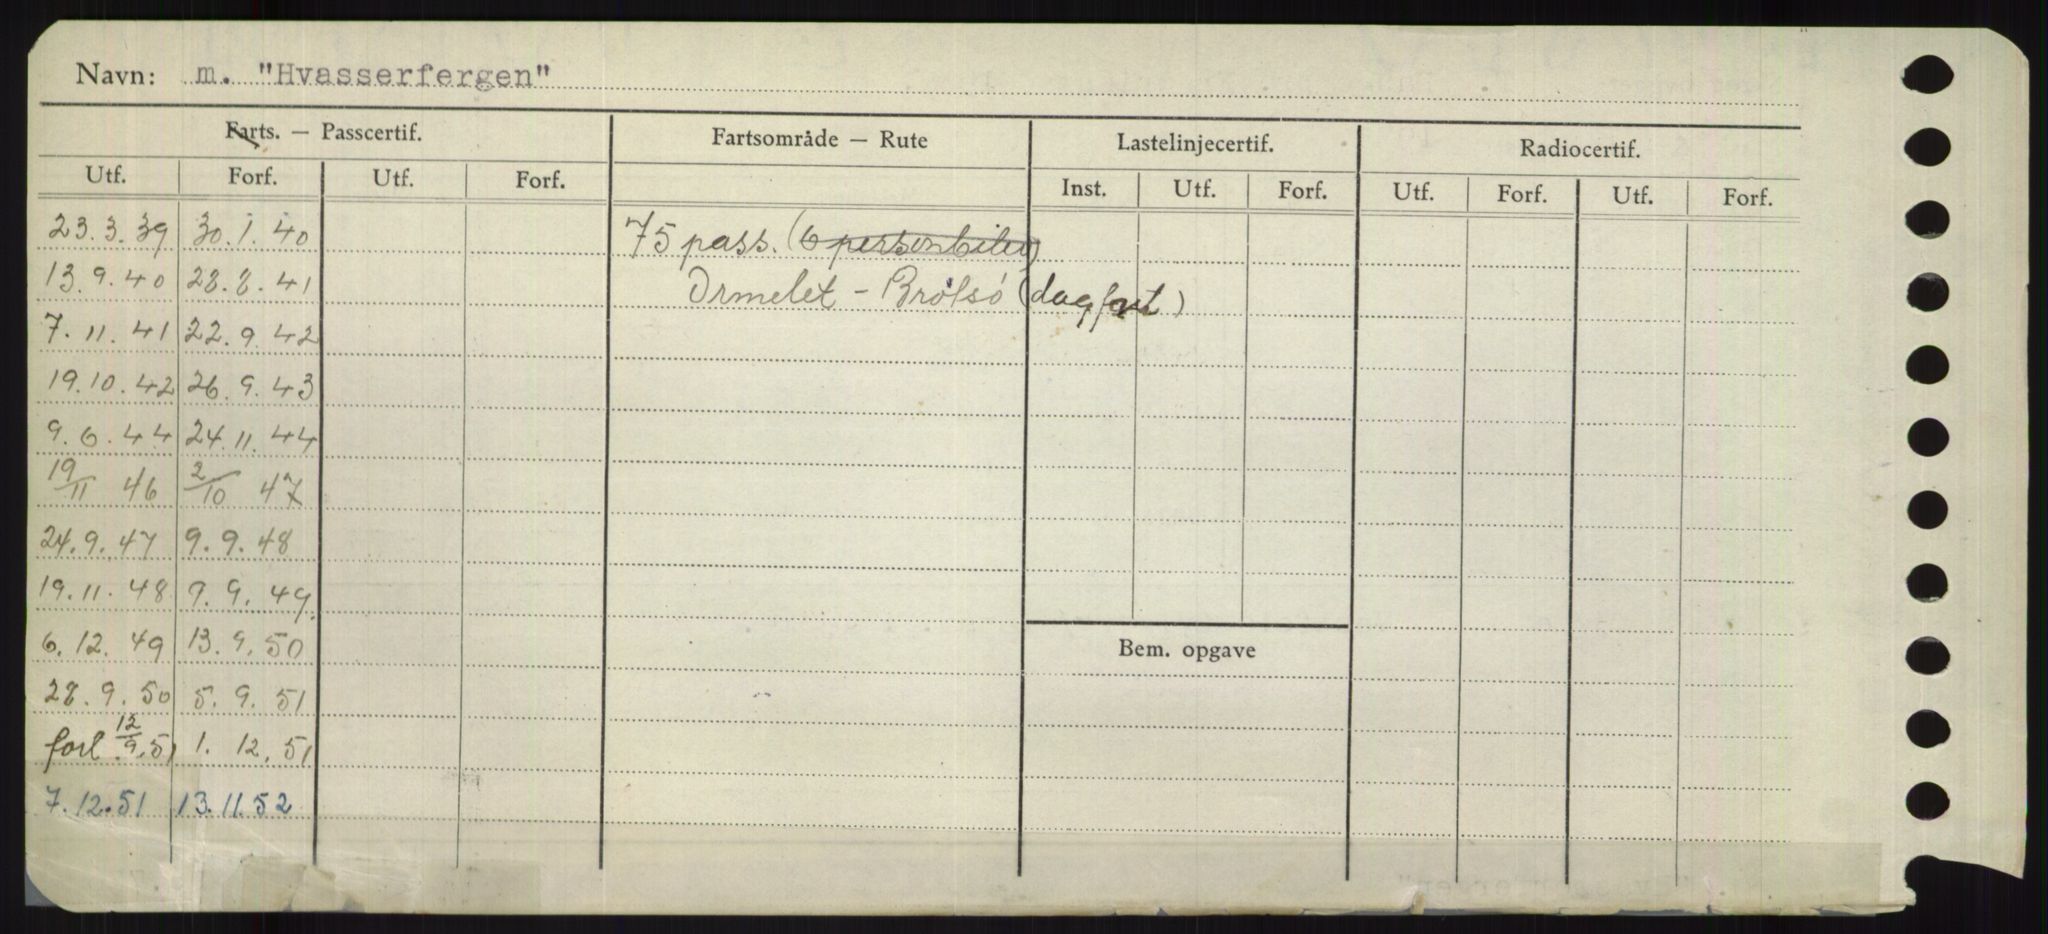 Navn: m. "Hvasserfergen"
Farts. — Passcertif. Fartsområde — Rute Lastelinjecertif. Radiocertif.
Utf. Forf. Utf. Forf. Inst. Utf. Forf. Utf. Forf. Utf. Forf.
23.3.39 30.1.40 75 pass. (6 personbiler)
13.9.40 28.8.41 Ormelet - Brøtsø (dagfart)
7.11.41 22.9.42
19.10.42 26.9.43
9.6.44 24.11.44
19/11 46 2/10 47
24.9.47 9.9.48
19.11.48 9.9.49.
6.12.49 13.9.50
Bem. opgave
28.9.50 5.9.51
forl 12/9.51 1.12.51
7.12.51 13.11.52